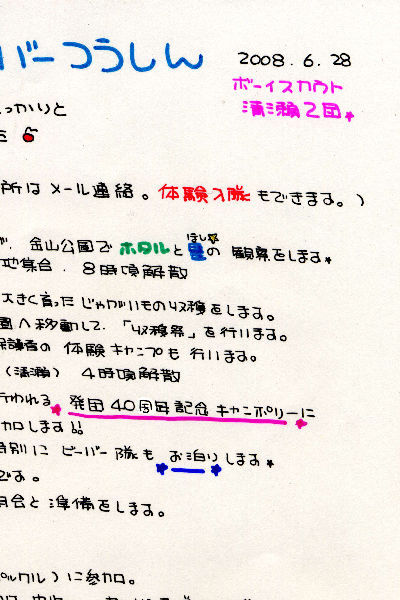 バーつうしん
2008.6.28
ボーイスカウト
清瀬2団
っかりと
所はメール連絡。体験入隊もできます。)
金山公園でホタルと星の観察をします
ほし
地集合. 8時頃解散
大きく育ったじゃがいもの収穫をします。
園へ移動して、「収穫祭」を行います。
保護者の体験キャンプも行います。
(清瀬) 4時頃解散
行われる 発団40周年記念キャンポリーに
加します!!
特別に ビーバー隊も お泊りします
です。
会と準備をします。
)に参加。